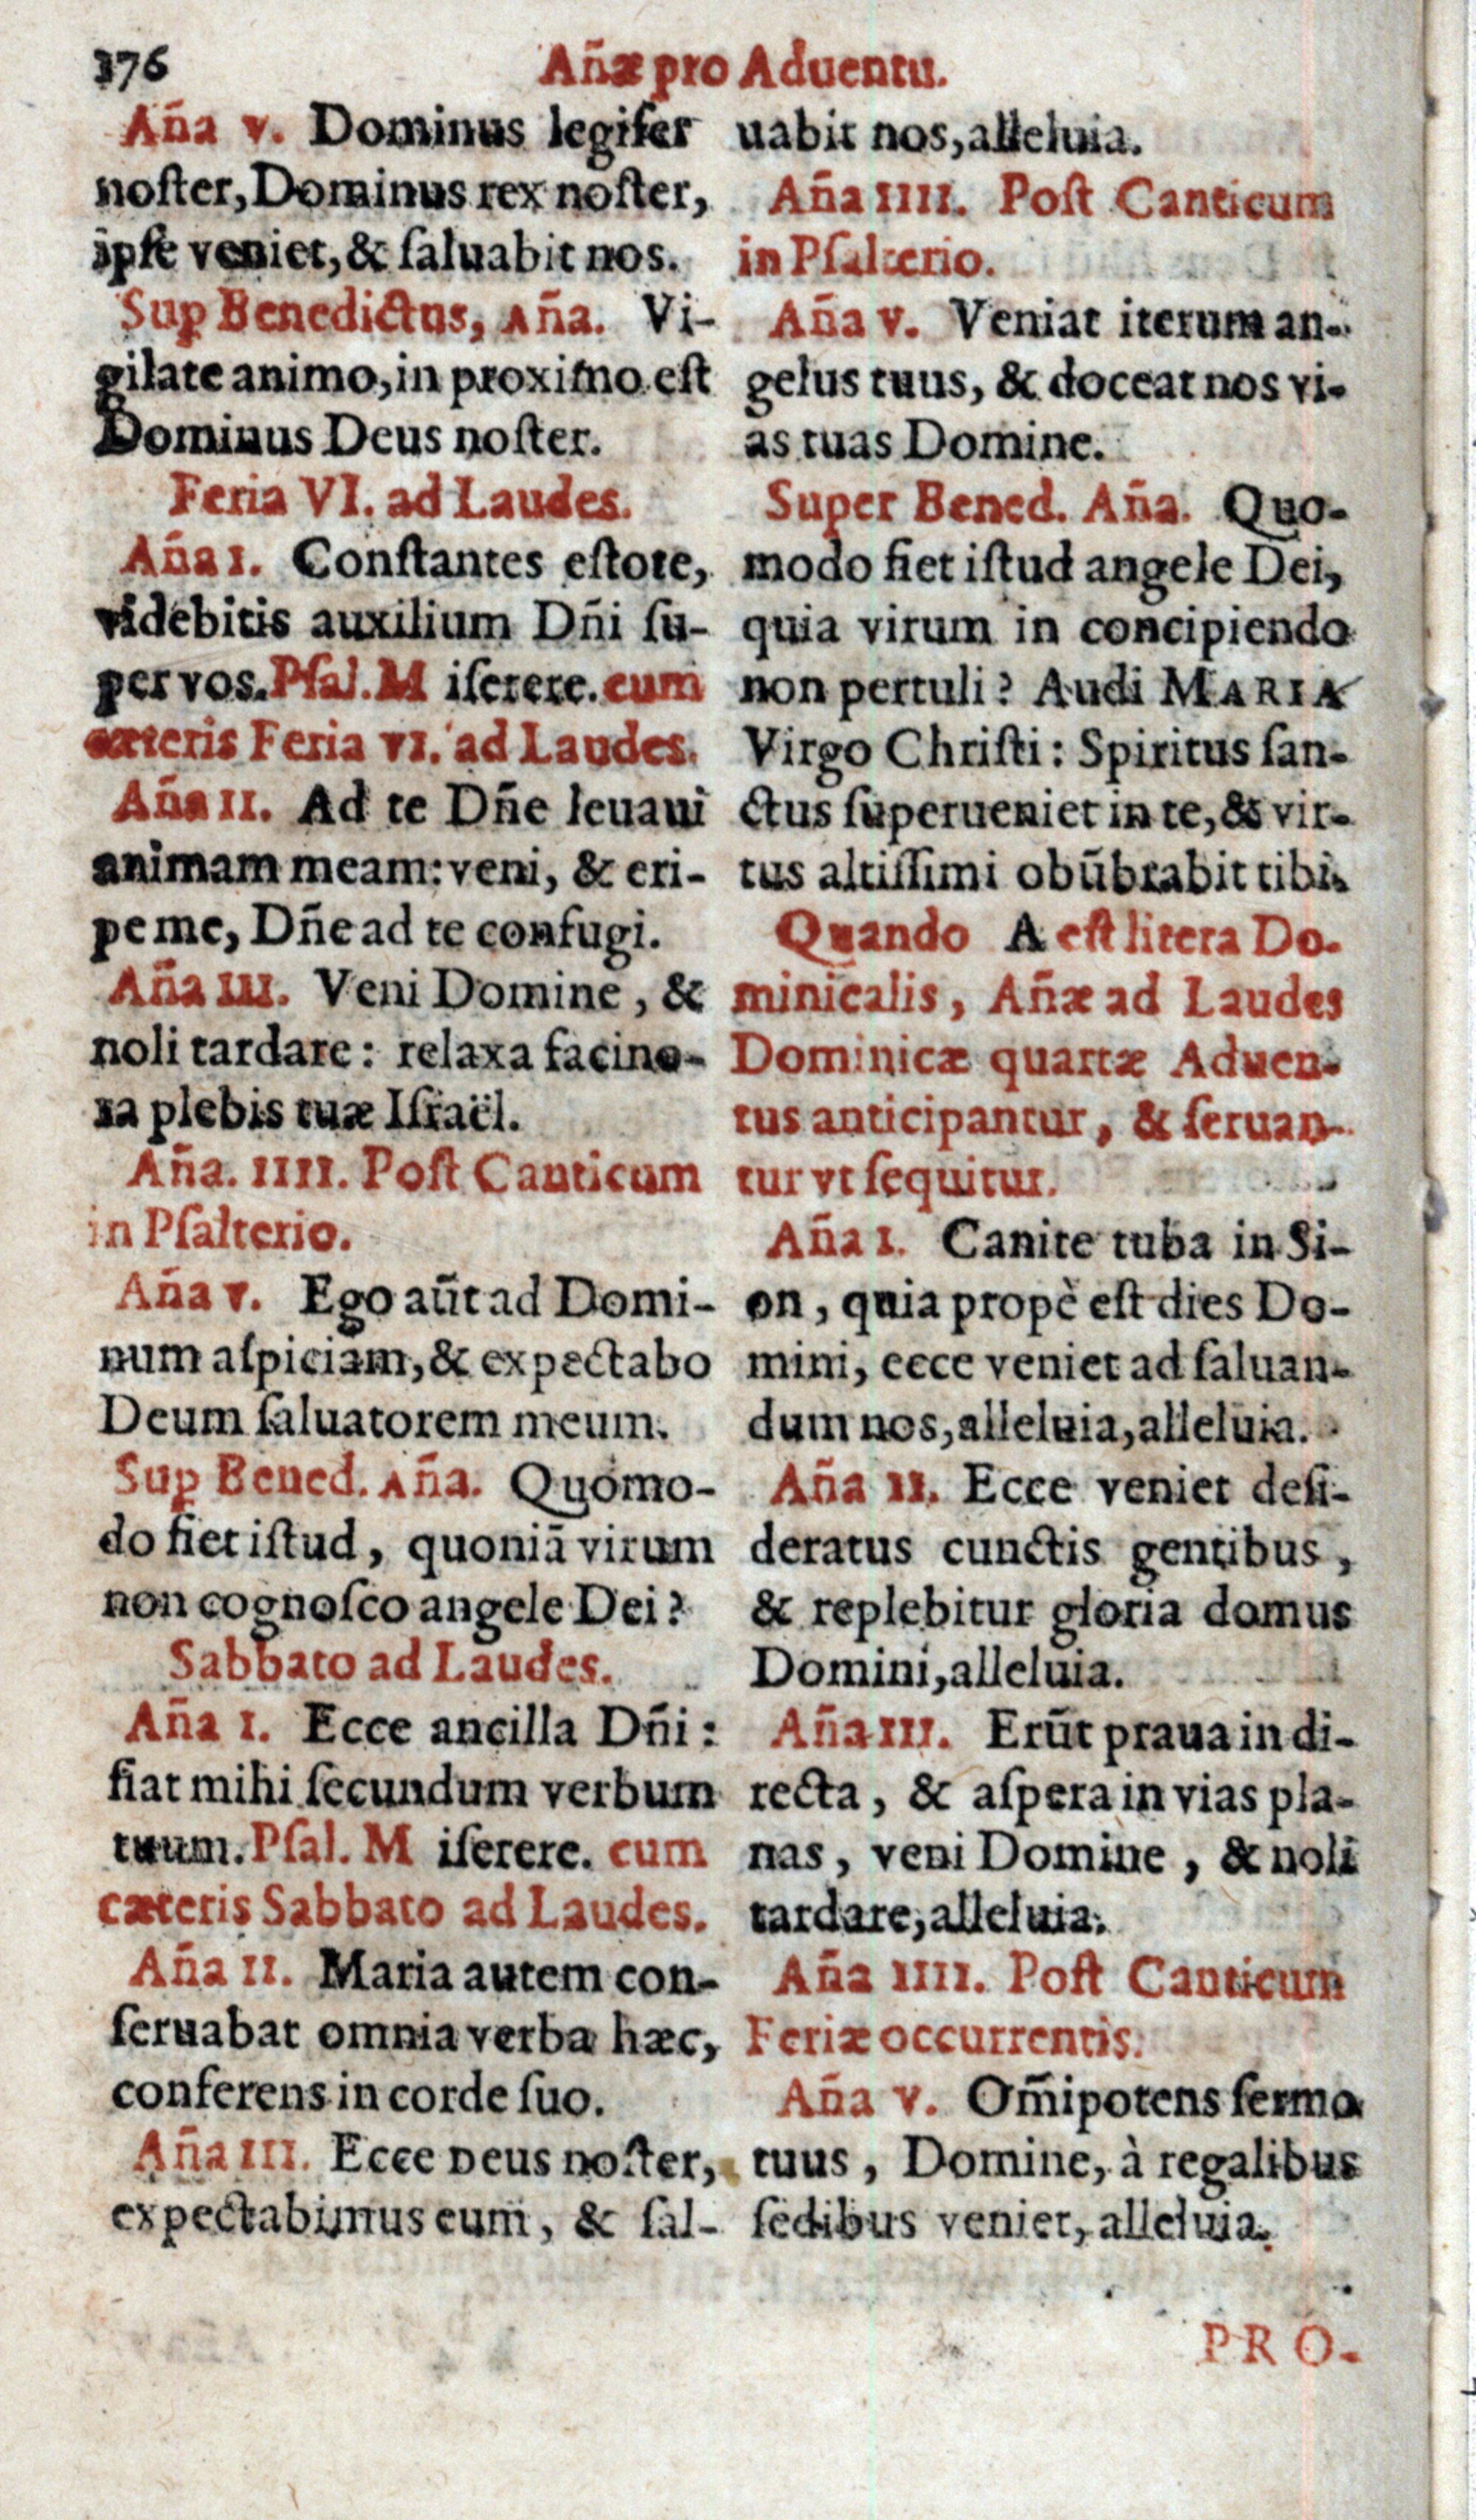 376
Añæ pro Aduentu.
Aña v. Dominus legifer
noſter, Dominus rex noſter,
ipſe veniet, & ſaluabit nos.
Sup Benedictus, Aña. Vi-
gilate animo, in proximo eſt
Dominus Deus noſter.
Feria VI. ad Laudes.
Aña I. Conſtantes eſtote,
videbitis auxilium Dñi ſu-
per vos. Pſal. M iſerere. cum
cæteris Feria VI. ad Laudes.
Aña II. Ad te Dñe leuaui
animam meam: veni, & eri-
pe me, Dñe ad te confugi.
Aña III. Veni Domine, &
noli tardare: relaxa facino-
ra plebis tuæ Iſraël.
Aña. IIII. Poſt Canticum
in Pſalterio.
Aña v. Ego aũt ad Domi-
num aſpiciam, & expectabo
Deum ſaluatorem meum.
Sup Bened. Aña. Quomo-
do fiet iſtud, quoniã virum
non cognoſco angele Dei?
Sabbato ad Laudes.
Aña I. Ecce ancilla Dñi:
fiat mihi ſecundum verbum
tuum. Pſal. M iſerere. cum
cæteris Sabbato ad Laudes.
Aña II. Maria autem con-
ſeruabat omnia verba hæc,
conferens in corde ſuo.
Aña III. Ecce Deus noſter,
expectabimus eum, & ſal-
uabit nos, alleluia.
Aña IIII. Poſt Canticum
in Pſalterio.
Aña v. Veniat iterum an-
gelus tuus, & doceat nos vi-
as tuas Domine.
Super Bened. Aña. Quo-
modo fiet iſtud angele Dei,
quia virum in concipiendo
non pertuli? Audi MARIA
Virgo Chriſti: Spiritus ſan-
ctus ſuperueniet in te, & vir-
tus altiſſimi obũbrabit tibi.
Quando A eſt litera Do-
minicalis, Añæ ad Laudes
Dominicæ quartæ Aduen-
tus anticipantur, & ſeruan-
tur vt ſequitur.
Aña I. Canite tuba in Si-
on, quia propè eſt dies Do-
mini, ecce veniet ad ſaluan-
dum nos, alleluia, alleluia.
Aña II. Ecce veniet deſi-
deratus cunctis gentibus,
& replebitur gloria domus
Domini, alleluia.
Aña III. Erũt praua in di-
recta, & aſpera in vias pla-
nas, veni Domine, & noli
tardare, alleluia.
Aña IIII. Poſt Canticum
Feriæ occurrentis.
Aña v. Om̃ipotens ſermo
tuus, Domine, à regalibus
ſedibus veniet, alleluia.
PRO-